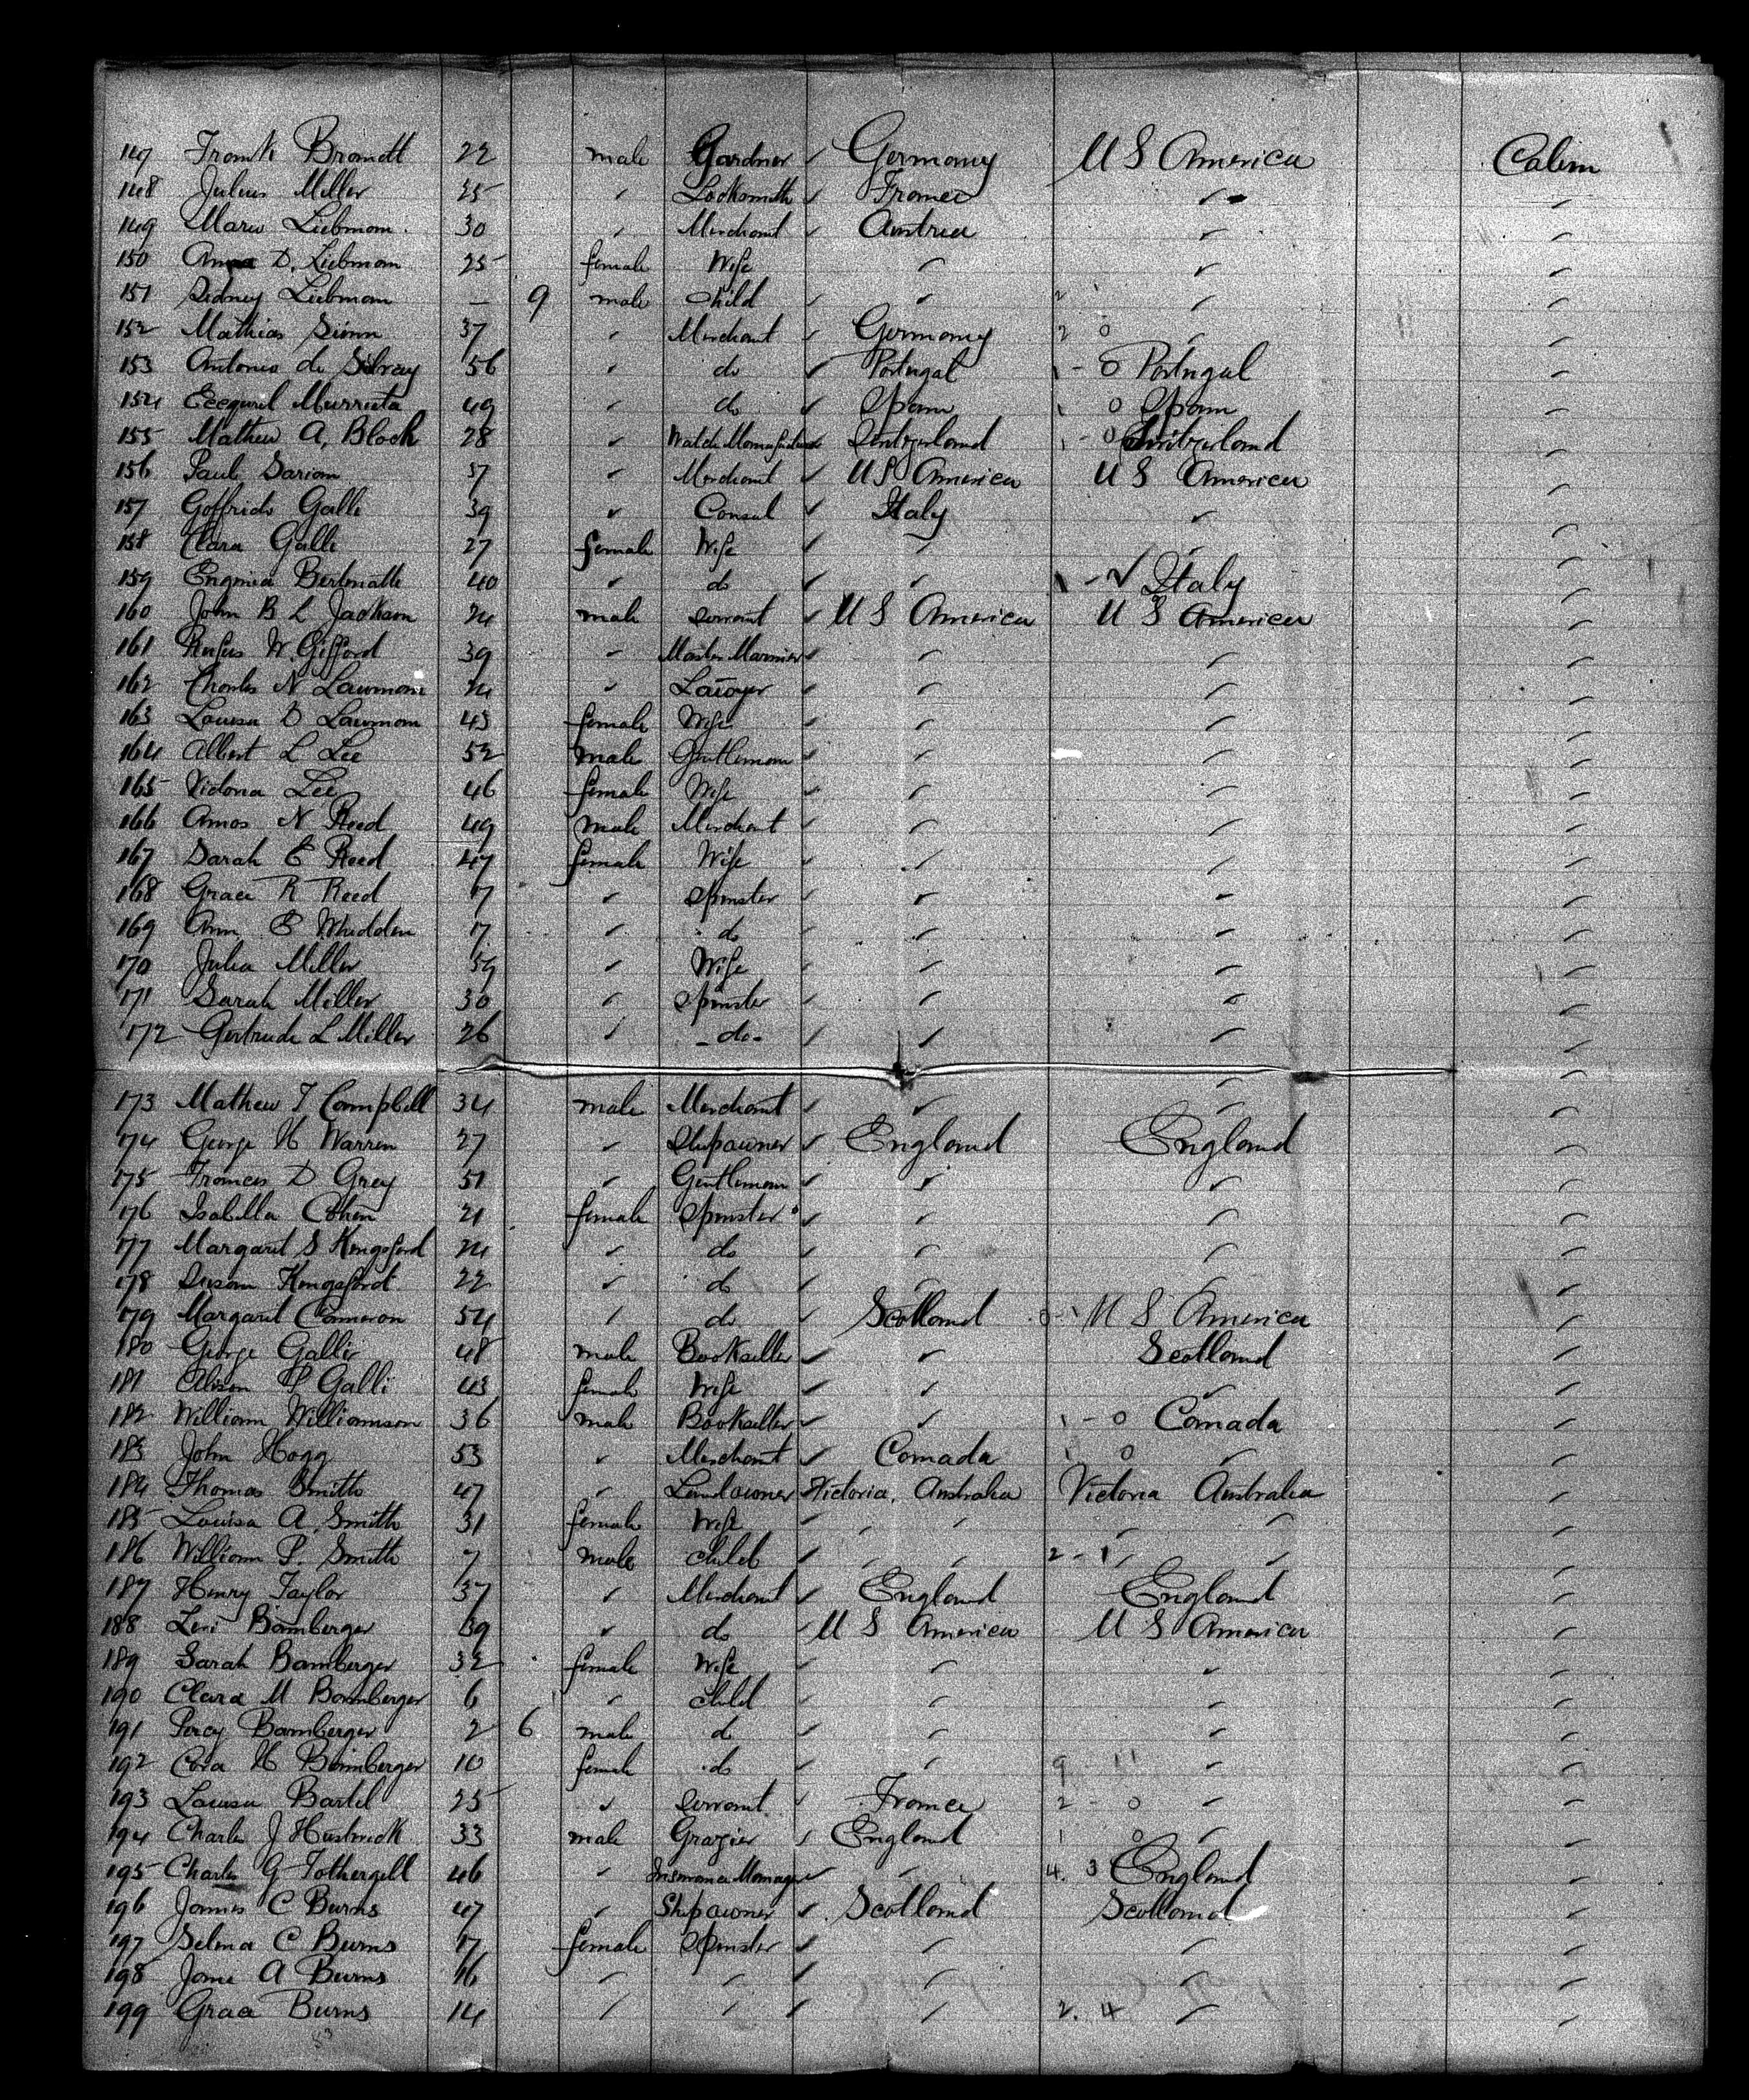 147 Frank Brandt 22 male Gardner ✓ Germany U S America Cabin
148 Julius Miller 25 ✓ Locksmith ✓ France ✓ ✓
149 Marw Liebman 30 ✓ Merchant ✓ Austria ✓ ✓
150 Anna D. Liebman 25 female Wife ✓ ✓ ✓
151 Sidney Liebman — 9 male child ✓ ✓ 2 ✓ ✓
152 Mathias Simn 37 ✓ Merchant ✓ Germany 2 0 ✓ ✓
153 Antonio de Silvay 56 ✓ do ✓ Portugal 1 - 0 Portugal ✓
154 Ezequiel Murrieta 49 ✓ do ✓ Spain 1 0 Spain ✓
155 Mathew A. Bloch 28 ✓ Watch Manufacturer Switzerland 1 - 0 Switzerland ✓
156 Paul Dariom 37 ✓ Merchant ✓ U S America U S America ✓
157 Goffrido Galli 39 ✓ Consul ✓ Italy ✓ ✓
158 Clara Galli 27 female Wife ✓ ✓ ✓ ✓
159 40 ✓ do ✓ ✓ 1 - ✓ Italy ✓
160 John B L Jackson 24 male Servant ✓ U S America U S America ✓
161 Rufus W. Gifford 39 ✓ Master Mariner ✓ ✓ ✓ ✓
162 Charles N Lawman 24 ✓ Lawyer ✓ ✓ ✓ ✓
163 Louisa D Lawman 43 female Wife ✓ ✓ ✓ ✓
164 Albert L Lee 52 male Gentleman ✓ ✓ ✓
165 Victoria Lee 46 female Wife ✓ ✓ ✓ ✓
166 Amos N Reed 49 male Merchant ✓ ✓ ✓ ✓
167 Sarah E Reed 47 female Wife ✓ ✓ ✓ ✓
168 Grace R Reed 17 ✓ Spinster ✓ ✓ ✓ ✓
169 Ann E Whidden 17 ✓ do ✓ ✓ ✓ ✓
170 Julia Miller 59 ✓ Wife ✓ ✓ ✓ ✓
171 Sarah Miller 30 ✓ Spinster ✓ ✓ ✓ ✓
172 Gertrude L Miller 26 ✓ - do - ✓ ✓ ✓ ✓
173 Mathew T Campbell 34 male Merchant ✓ ✓ ✓ ✓
174 George H Warren 27 ✓ Shipowner ✓ England England ✓
175 Frances D Grey 51 ✓ Gentleman ✓ ✓ ✓ ✓
176 Isabella Cohen 21 female Spinster ✓ ✓ ✓ ✓
177 Margaret S Kingsford 24 ✓ do ✓ ✓ ✓ ✓
178 Susan Kingsford 22 ✓ do ✓ ✓ ✓
179 Margaret Cameron 54 ✓ do ✓ Scotland 0 - 1 U S America ✓
180 George Gallie 48 male Bookseller ✓ ✓ Scotland ✓
181 Alison P Galli 43 female Wife ✓ ✓ ✓ ✓
182 William Williamson 36 male Bookseller ✓ ✓ 1 - 0 Canada ✓
183 John Hogg 53 ✓ Merchant ✓ Canada 1 0 ✓ ✓
184 Thomas Smith 47 ✓ Landowner Victoria, Australia Victoria Australia ✓
185 Louisa A. Smith 31 female Wife ✓ ✓ ✓ ✓ ✓ ✓
186 William P. Smith 7 male child ✓ ✓ ✓ 2 - 1 ✓ ✓ ✓
187 Henry Taylor 37 ✓ Merchant ✓ England England ✓
188 Levi Bamberger 39 ✓ do ✓ U S America U S America ✓
189 Sarah Bamberger 32 female Wife ✓ ✓ ✓ ✓
190 Clara M Bamberger 6 ✓ child ✓ ✓ ✓ ✓
191 Percy Bamberger 2 6 male do ✓ ✓ ✓ ✓
192 Cora H Bamberger 10 female do ✓ ✓ 9 11 ✓ ✓
193 Louisa Bartel 25 ✓ Servant ✓ France 2 - 0 ✓ ✓
194 Charles J 33 male Grazier ✓ England 1 0 ✓ ✓
195 Charles G Fothergill 46 ✓ Insurance Manager ✓ ✓ 4. 3 England ✓
196 James C Burns 47 ✓ Shipowner ✓ Scotland Scotland ✓
197 Selma C Burns 17 female Spinster ✓ ✓ ✓ ✓
198 Jane A Burns 16 ✓ ✓ ✓ ✓ ✓ ✓
199 Grace Burns 14 ✓ ✓ ✓ ✓ 2. 4 ✓ ✓